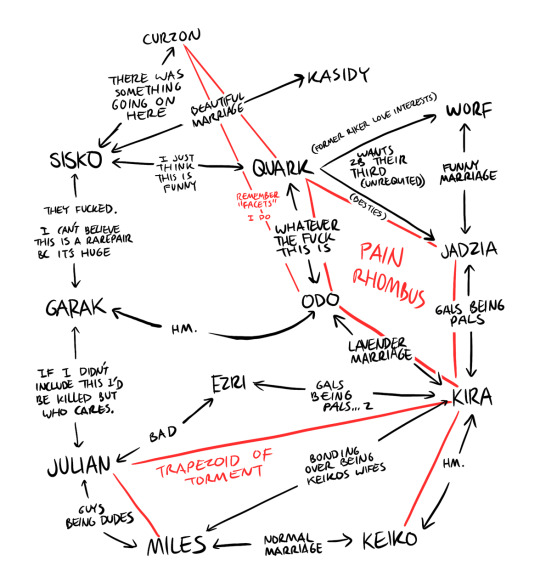 CURZON
THERE WAS
SOMETHING
GOING ON
HERE
BEAUTIFUL
MARRIAGE
KASIDY
(FORMER RIKER LOVE INTERESTS)
WORF
SISKO
I JUST
THINK
THIS IS
FUNNY
QUARK
WANTS
2B THEIR
THIRD
(UNREQUITED)
FUNNY
MARRIAGE
(BESTIES)
REMEMBER
"FACETS"
I DO
THEY FUCKED.
I CAN'T BELIEVE
THIS IS A RAREPAIR
BC IT'S HUGE
WHATEVER
THE FUCK
THIS IS
PAIN
RHOMBUS
JADZIA
GARAK
HM.
ODO
GALS BEING
PALS
LAVENDER
MARRIAGE
IF I DIDN'T
INCLUDE THIS I'D
BE KILLED BUT
WHO CARES.
EZRI
GALS
BEING
PALS...2
KIRA
BAD
JULIAN
TRAPEZOID OF
TORMENT
BONDING
OVER BEING
KEIKOS WIFES
HM.
GUYS
BEING DUDES
MILES
NORMAL
MARRIAGE
KEIKO